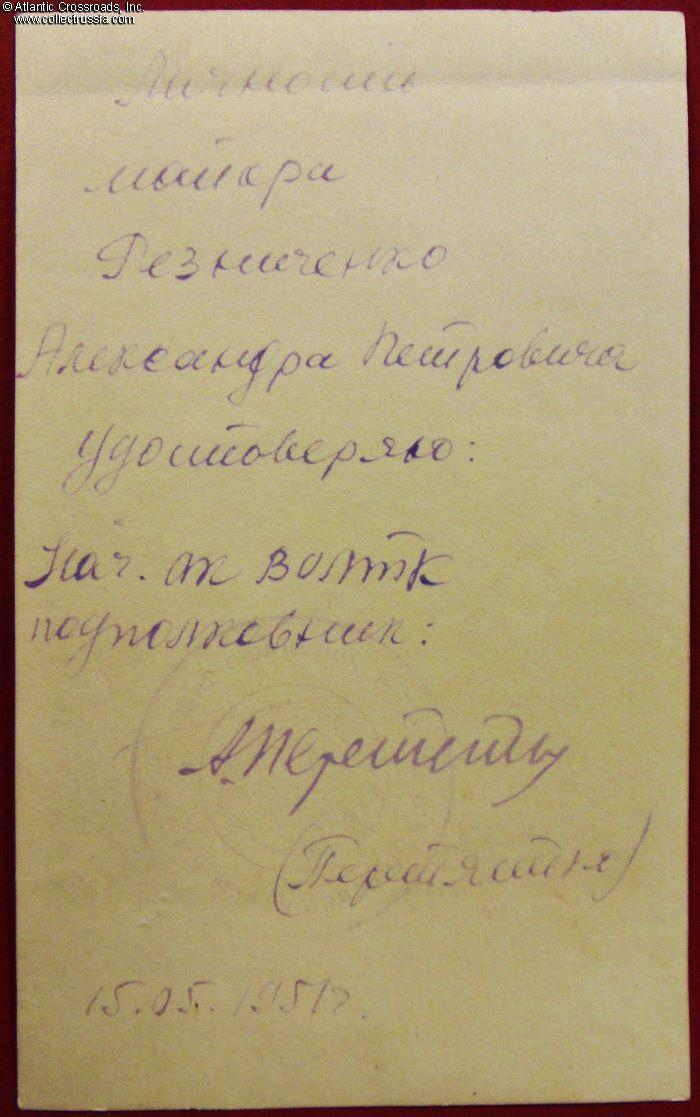 © Atlantic Crossroads, Inc.
www.collectrussia.com
Личность
майора
Резниченко
Александра Петровича
удостоверяю:
Нач. ОК
подполковник:
15.05.1951г.